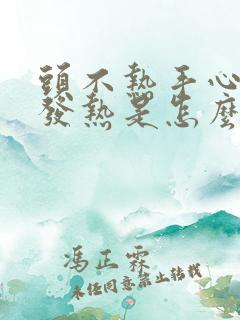 頭不熱手心
發熱是怎麼
馮正霖
未經同意禁止轉載